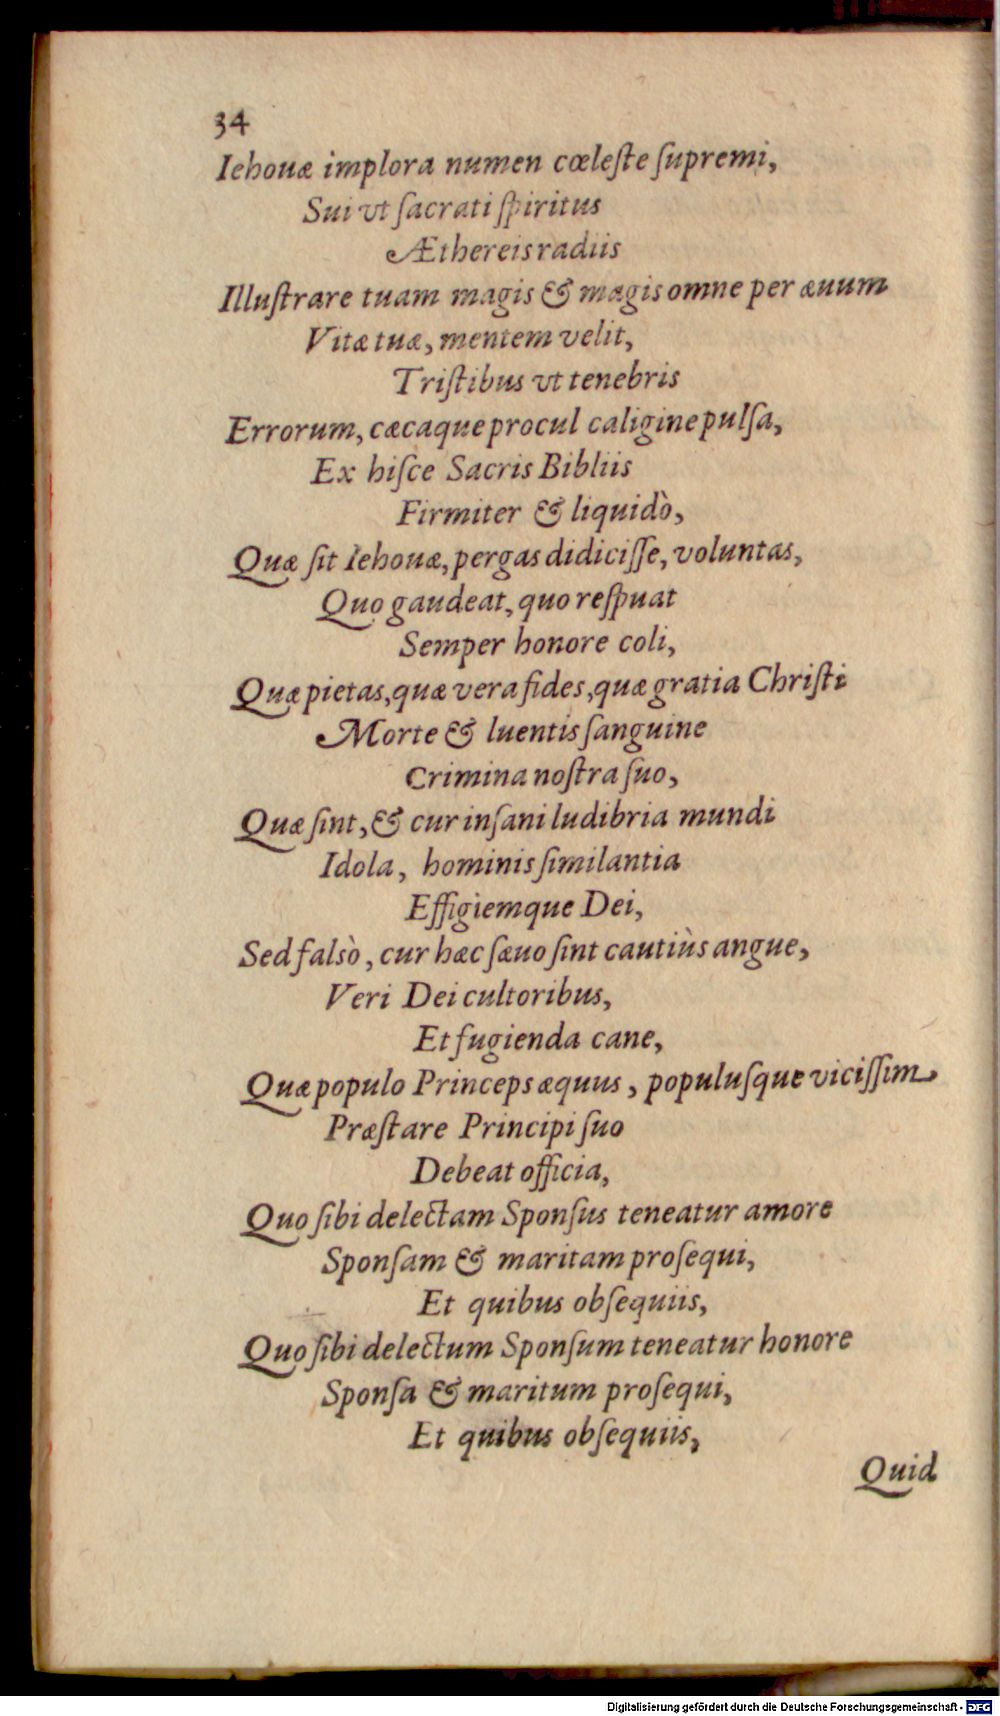 34
Iehouæ implora numen cœleſte ſupremi,
Sui vt ſacrati ſpiritus
Æthereis radiis
Illuſtrare tuam magis & magis omne per æuum
Vitæ tuæ, mentem velit,
Triſtibus vt tenebris
Errorum, cæcaque procul caligine pulſa,
Ex hiſce Sacris Bibliis
Firmiter & liquidò,
Quæ ſit Iehouæ, pergas didiciſſe, voluntas,
Quo gaudeat, quo reſpuat
Semper honore coli,
Quæ pietas, quæ vera fides, quæ gratia Chriſti
Morte & luentis ſanguine
Crimina noſtra ſuo,
Quæ ſint, & cur inſani ludibria mundi
Idola, hominis ſimilantia
Effigiemque Dei,
Sed falsò, cur hæc ſæuo ſint cautiùs angue,
Veri Dei cultoribus,
Et fugienda cane,
Quæ populo Princeps æquus, populuſque viciſſim
Præſtare Principi ſuo
Debeat officia,
Quo ſibi delectam Sponſus teneatur amore
Sponſam & maritam proſequi,
Et quibus obſequiis,
Quo ſibi delectum Sponſum teneatur honore
Sponſa & maritum proſequi,
Et quibus obſequiis,
Quid
Digitalisierung gefördert durch die Deutsche Forschungsgemeinschaft - DFG